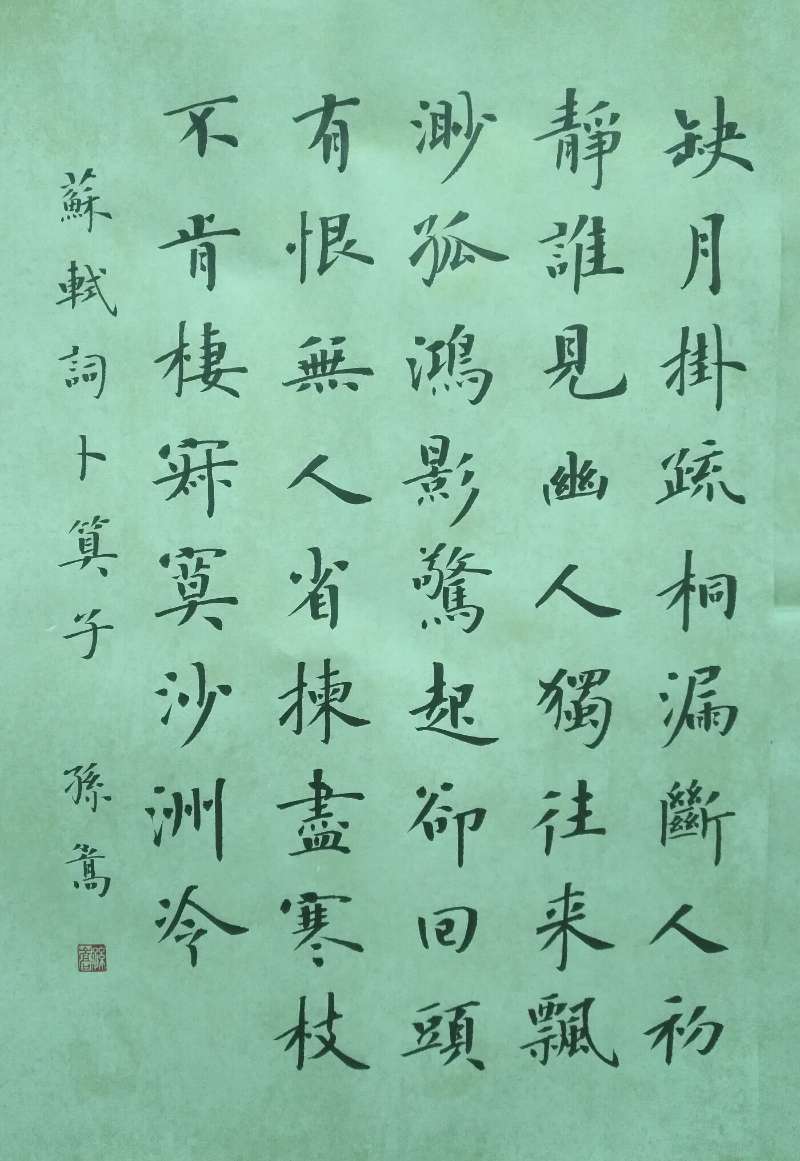 缺月掛疏桐漏斷人初
靜誰見幽人獨往来飄
渺孤鴻影驚起卻回頭
有恨無人省揀盡寒枝
不肯棲寂寞沙洲冷
蘇軾詞卜算子 孫